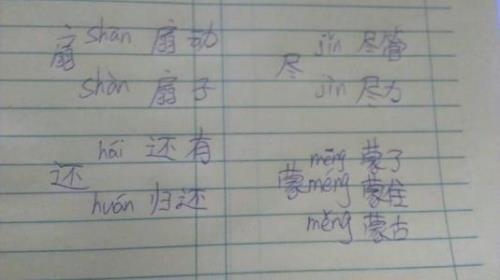 扇 shān 扇动
shàn 扇子
尽 jǐn 尽管
jìn 尽力
还 hái 还有
huán 归还
蒙 mēng 蒙了
méng 蒙住
měng 蒙古